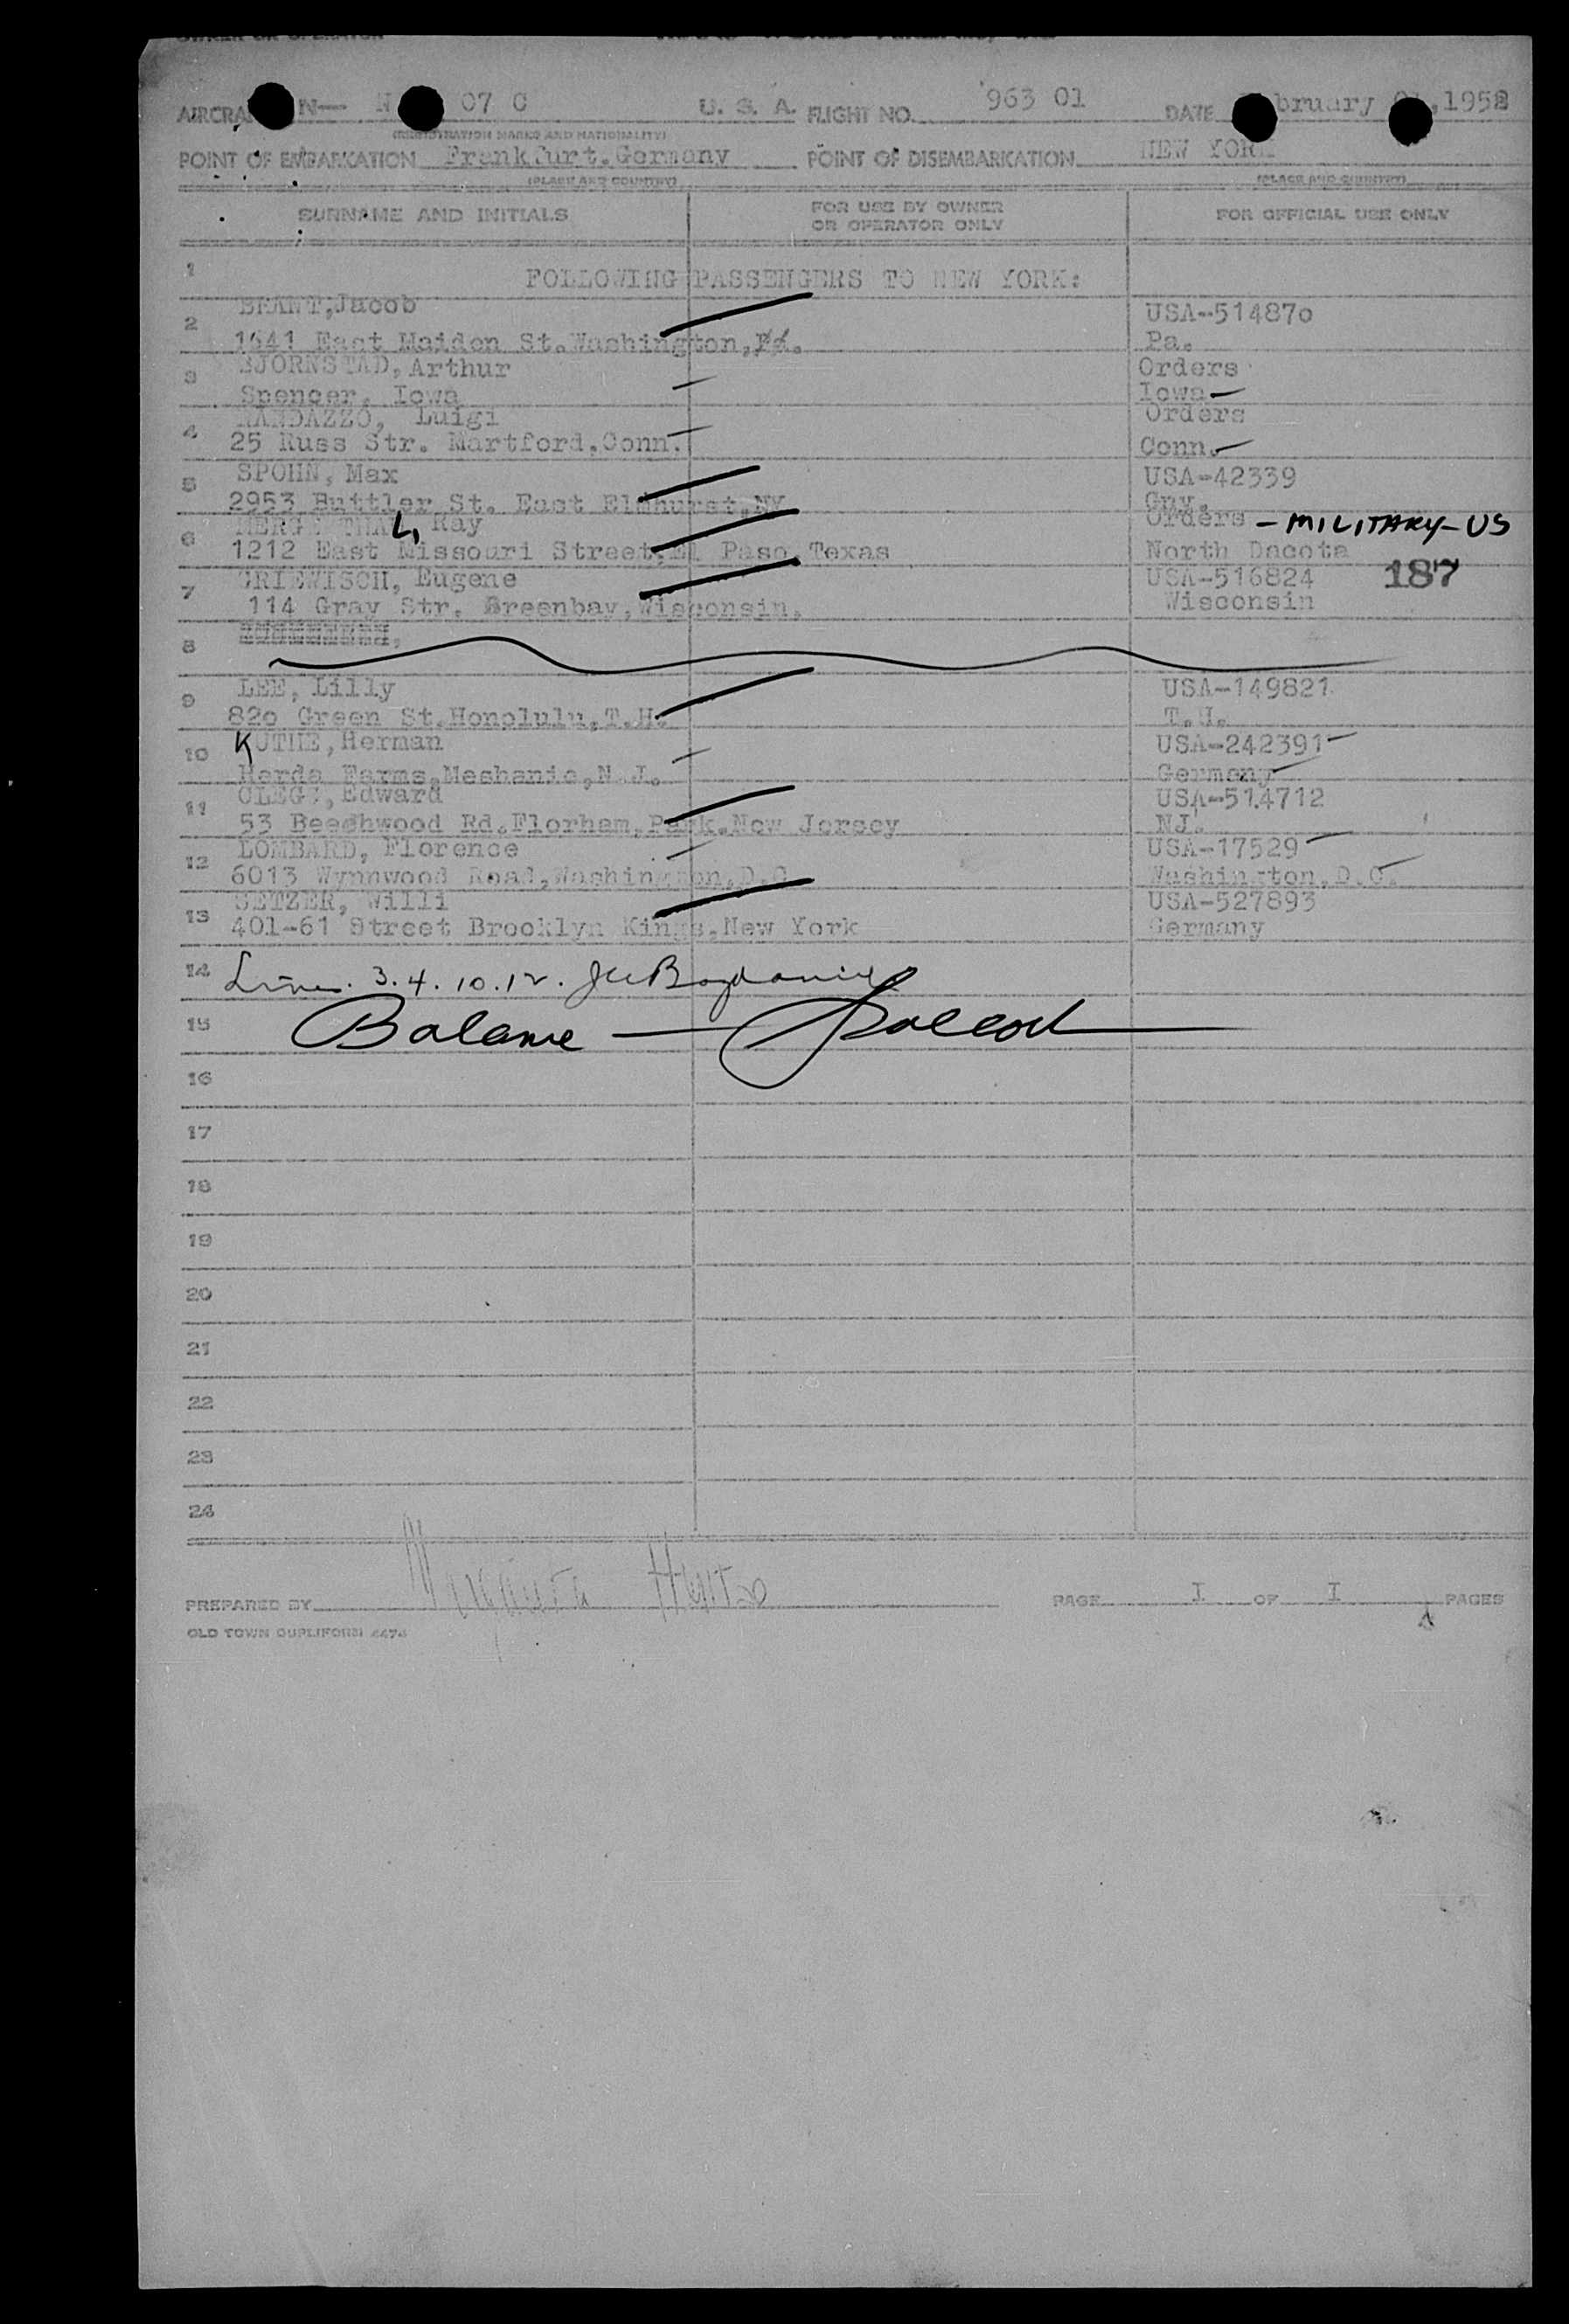 OWNER OR OPERATOR
N— N 07 C U. S. A. FLIGHT NO. 963 01 DATE bruary ,1952
(REGISTRATION MARKS AND NATIONALITY)
POINT OF EMBARKATION Frankfurt.Germany POINT OF DISEMBARKATION NEW YORK
(PLACE AND COUNTRY) (PLACE AND COUNTRY)
SURNAME AND INITIALS FOR USE BY OWNER OR OPERATOR ONLY FOR OFFICIAL USE ONLY
1 FOLLOWING PASSENGERS TO NEW YORK:
2 BRANT,Jacob USA-51487o
1641 East Maiden St.Washington,Pa. Pa.
3 BJORNSTAD, Arthur Orders
Spencer, Iowa Iowa
4 RANDAZZO, Luigi Orders
25 Russ Str. Hartford,Conn. Conn.
5 SPOHN, Max USA-42339
2953 Buttler St. East Elmhurst,NY Gny.
6 MERGENTHAL, Ray Orders - MILITARY-US
1212 East Missouri Street,El Paso,Texas North Dacota
7 GRIEWISCH, Eugene USA-516824 187
114 Gray Str. Greenbay,Wisconsin. Wisconsin
8
9 LEE, Lilly USA-149821
82o Green St.Honolulu,T.H. T.H.
10 KUTHE,Herman USA-242391
Herda Farms,Meshanic,N.J. Germany
11 CLEGG, Edward USA-514712
53 Beechwood Rd.Florham,Park,New Jersey NJ.
12 LOMBARD, Florence USA-17529
6013 Wynnwood Road,Washington,D.C. Washington,D.C.
13 SETZER, Willi USA-527893
401-61 Street Brooklyn Kings,New York Germany
14 Lines. 3. 4. 10. 12.
15 Balance —
16
17
18
19
20
21
22
23
24
PREPARED BY PAGE I OF I PAGES
OLD TOWN DUPLIFORM